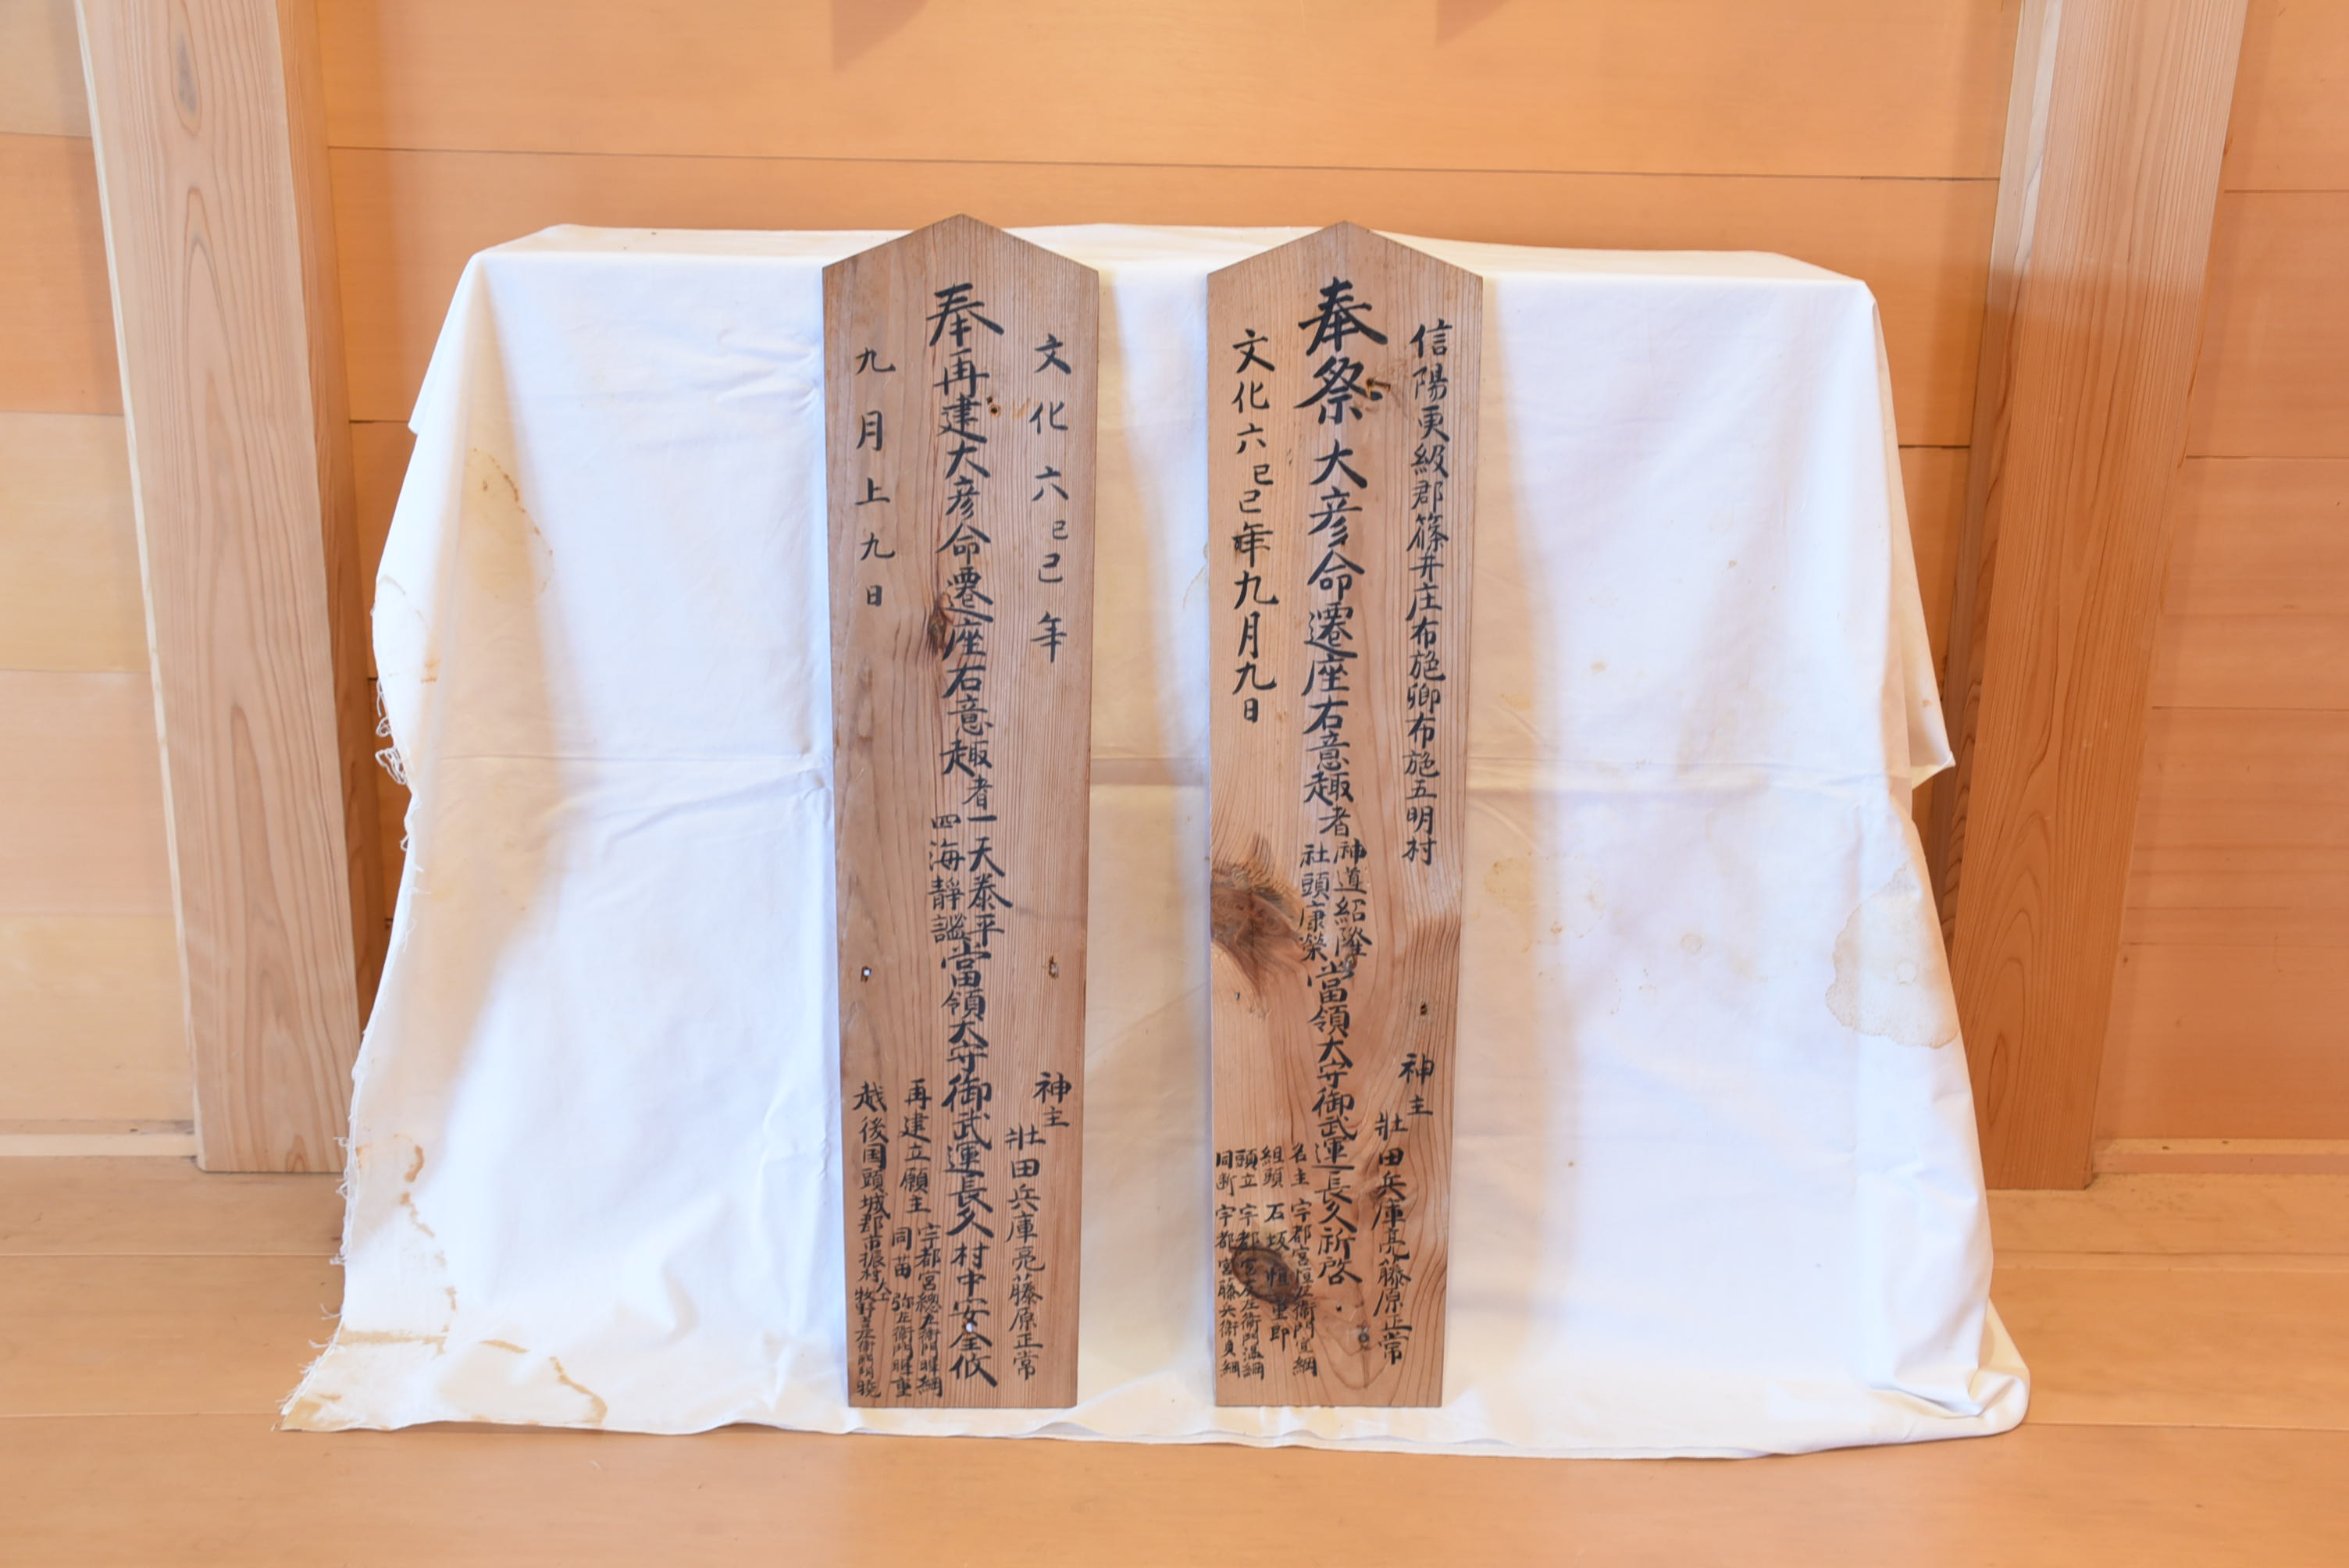 信陽更級郡篠井庄布施卿布施五明村
奉祭大彦命遷座右意趣者
神道紹隆
社頭康榮
當領大守御武運長久祈啓
文化六己巳年九月九日
神主
壯田兵庫亮藤原正常
名主 宇都宮恒左衛門宣綱
組頭 石坂恒重即
頭立 宇都宮 左衛門温綱
同断 宇都宮藤兵衛貞綱
文化六己巳年
奉再建大彦命遷座右意趣者
一天泰平
四海靜謐
當領大守御武運長久村中安全攸
九月上九日
神主
壯田兵庫亮藤原正常
再建立願主
宇都宮總左衛門暉綱
同苗 弥左衛門暉重
越後国頭城郡市振村
大工
牧野 左衛門